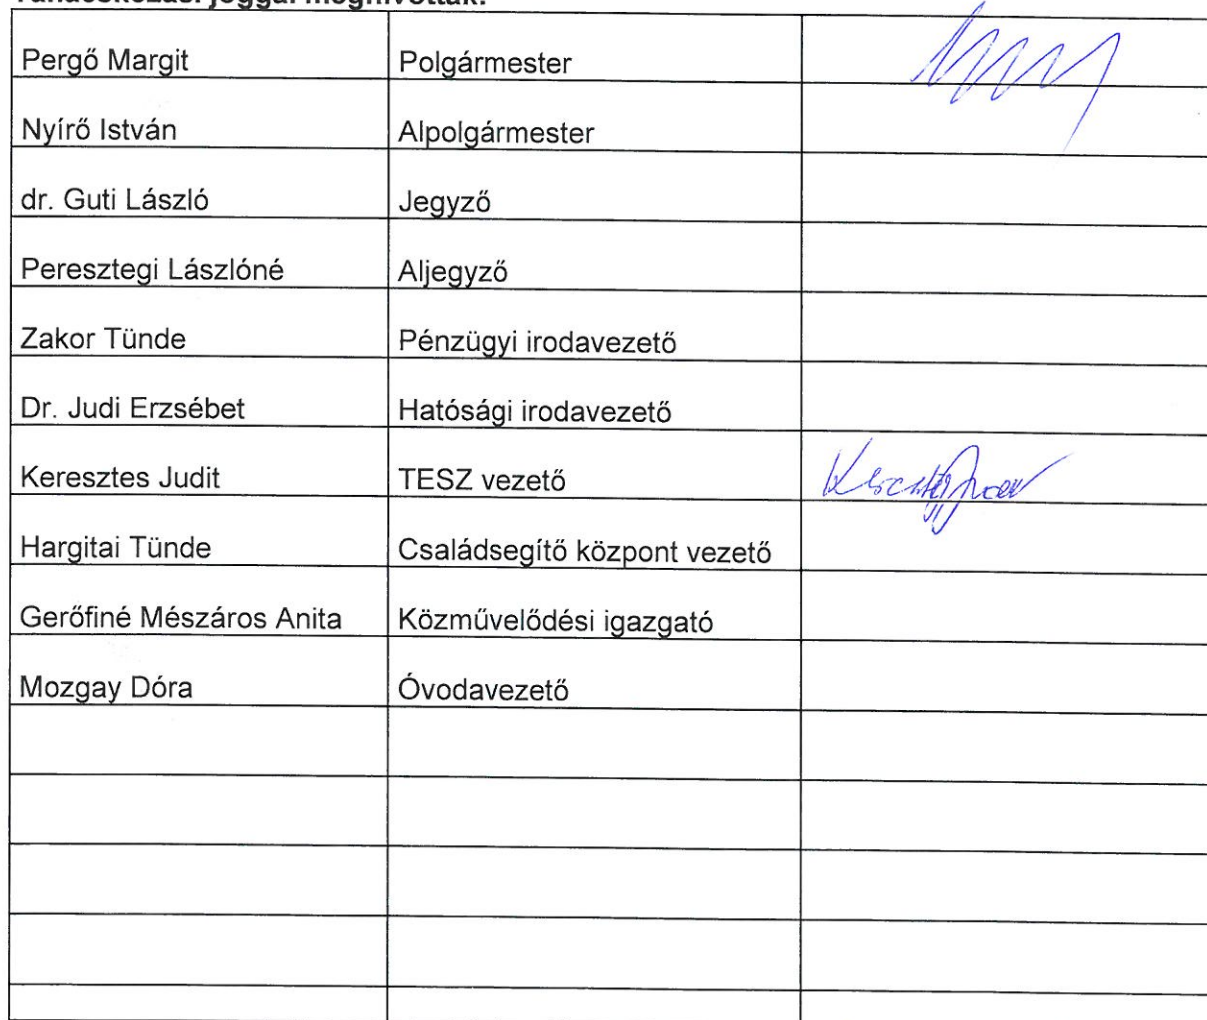 Tanácskozási joggal meghívottak:
Pergő Margit Polgármester
Nyírő István Alpolgármester
dr. Guti László Jegyző
Peresztegi Lászlóné Aljegyző
Zakor Tünde Pénzügyi irodavezető
Dr. Judi Erzsébet Hatósági irodavezető
Keresztes Judit TESZ vezető
Hargitai Tünde Családsegítő központ vezető
Gerőfiné Mészáros Anita Közművelődési igazgató
Mozgay Dóra Óvodavezető